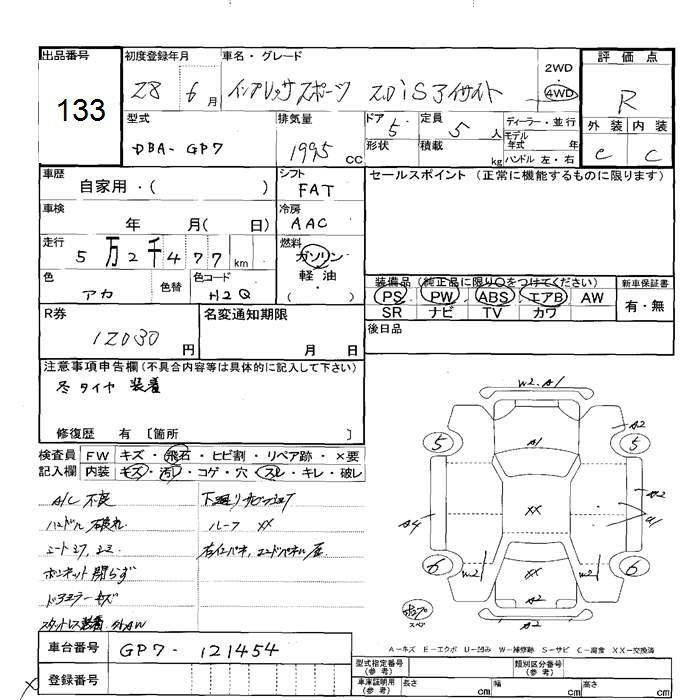 出品番号 初度登録年月 車名・グレード 2WD 評価点
133 28 6月 インプレッサスポーツ 2.0iSアイサイト 4WD R
型式 排気量 ドア 5 定員 5人 ディーラー・並行 外装 内装
DBA-GP7 1995cc 形状 積載 kg モデル年式 年 e C
ハンドル 左・右
車歴 シフト セールスポイント (正常に機能するものに限ります)
自家用・( ) FAT
車検 冷房
年 月( 日) AAC
走行 燃料
5万2千477km ガソリン
色 色替 色コード 軽油 装備品 (純正品に限り○をつけてください) 新車保証書
アカ H2Q ( ) PS PW ABS エアB AW 有・無
R券 名変通知期限 SR ナビ TV カワ
12030円 月 日 後日品
注意事項申告欄(不具合内容等は具体的に記入して下さい)
冬タイヤ 装着
修復歴 有 〔箇所 〕
検査員 FW キズ・飛石・ヒビ割・リペア跡・×要
記入欄 内装 キズ・汚レ・コゲ・穴・スレ・キレ・破レ
A/C 不良
ルーフ XX
ボンネット開らず
ドアミラーキズ
W2.A1
A2
5 A1 5
A2
A4 XX
6 W2 XX W2 6
A2
A2
スペア
A-キズ E-エクボ U-凹み W-補修跡 S-サビ C-腐食 XX-交換済
車台番号 GP7-121454
登録番号
型式指定番号(参考) 類別区分番号(参考)
車庫証明用(参考) 長さ cm 幅 cm 高さ cm